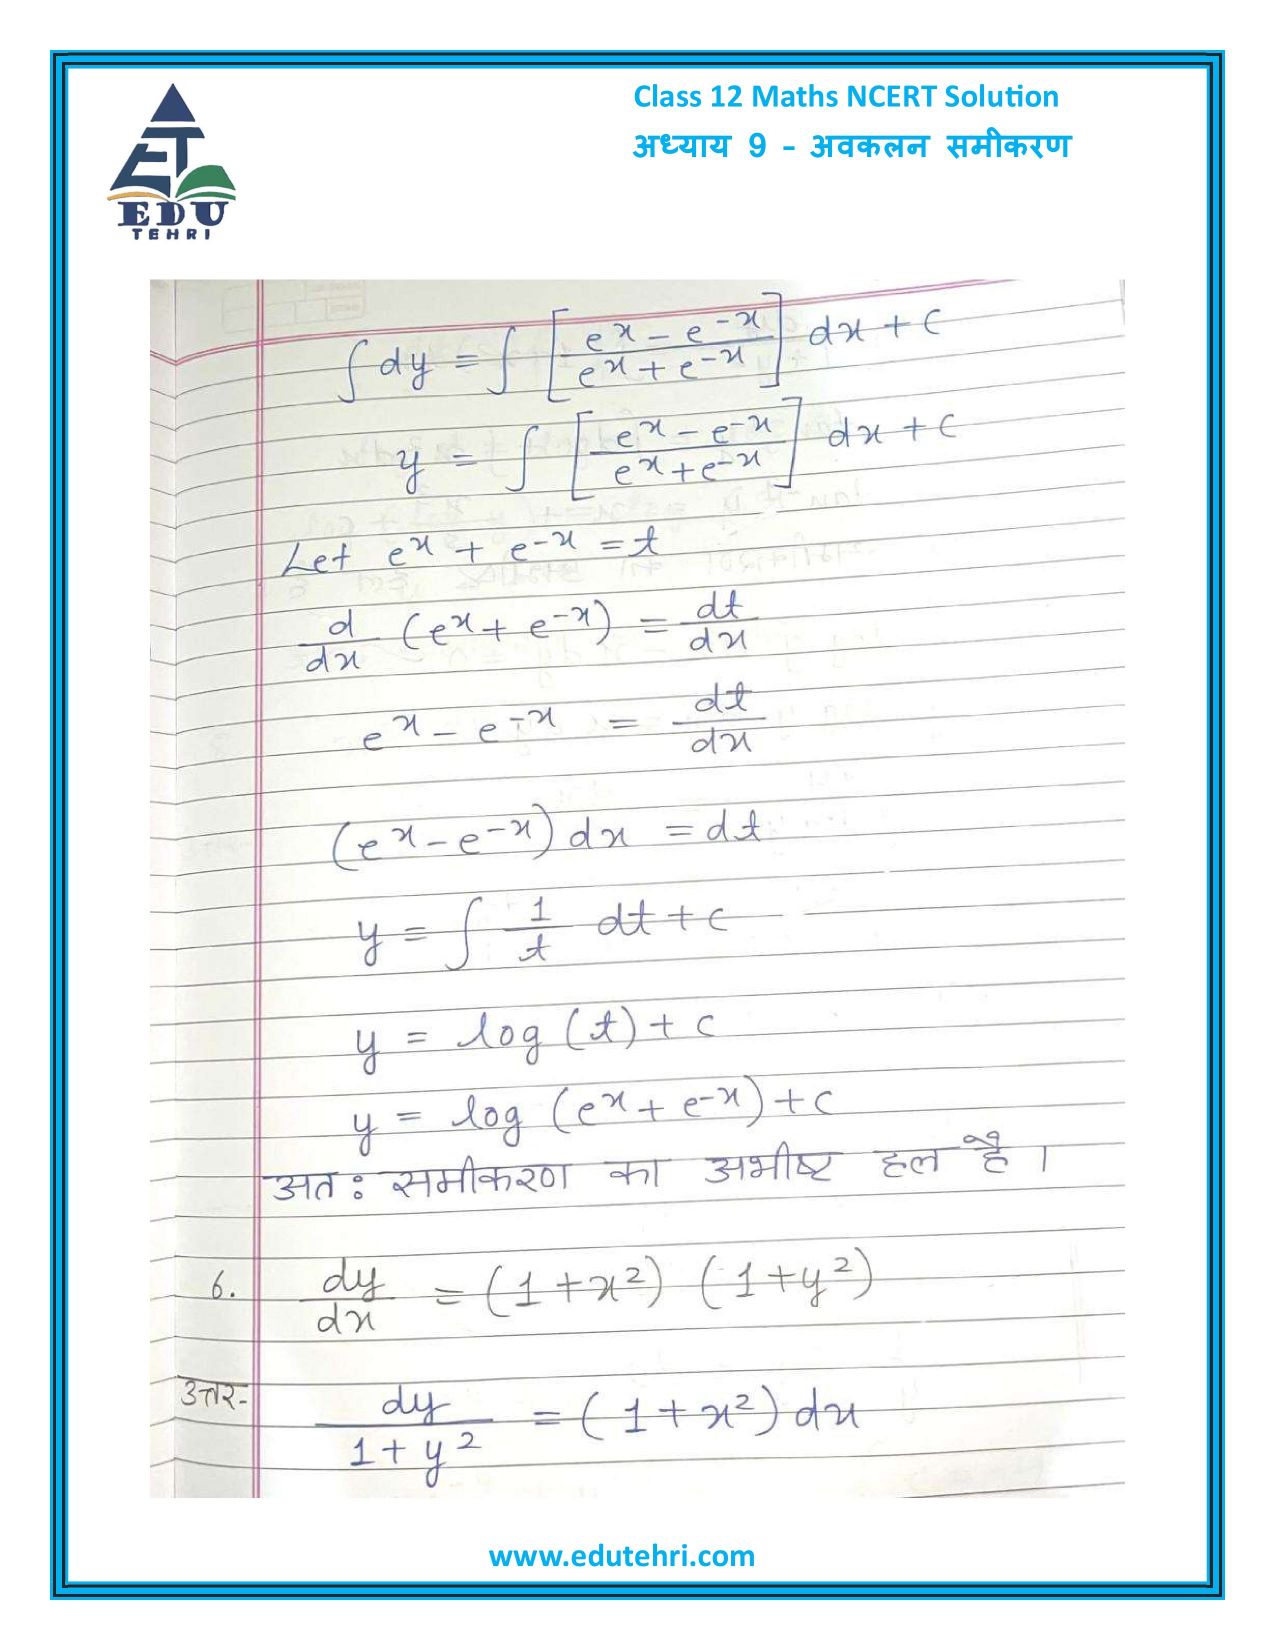 Class 12 Maths NCERT Solution
अध्याय 9 – अवकलन समीकरण
EDU
TEHRI
∫ dy = ∫ [ (eˣ − e⁻ˣ) / (eˣ + e⁻ˣ) ] dx + c
y = ∫ [ (eˣ − e⁻ˣ) / (eˣ + e⁻ˣ) ] dx + c
Let eˣ + e⁻ˣ = t
d/dx (eˣ + e⁻ˣ) = dt/dx
eˣ − e⁻ˣ = dt/dx
(eˣ − e⁻ˣ) dx = dt
y = ∫ 1/t dt + c
y = log (t) + c
y = log (eˣ + e⁻ˣ) + c
अत: समीकरण का अभीष्ट हल है।
6. dy/dx = (1 + x²) (1 + y²)
उत्तर- dy/(1 + y²) = (1 + x²) dx
www.edutehri.com